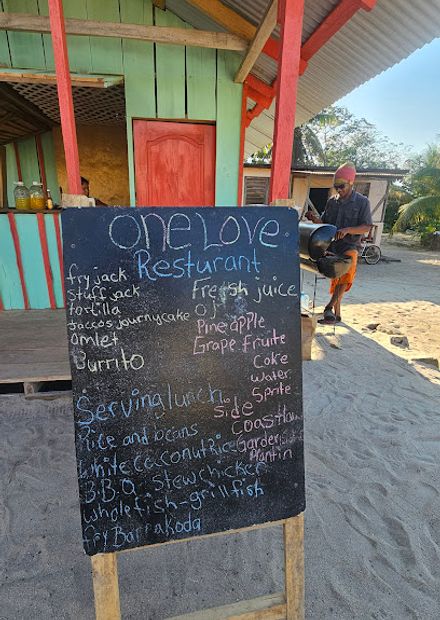 One Love
Resturant
fry jack
Stuff jack
tortilla
taccos journycake
omlet
Burrito
Fresh juice
oj
Pineapple
Grape fruite
Coke
Water
Sprite
Serving lunch
Rice and beans
white coconut Rice
B.B.Q. stew chicken
whole fish-grill fish
fry Barrakoda
Side
Plantin